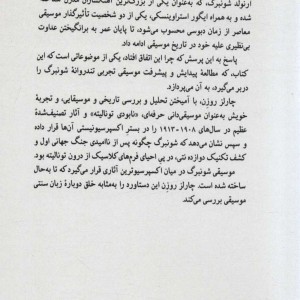 آرنولد شونبرگ، که به‌عنوان یکی از بزرگ‌ترین
شده و به همراه ایگور استراوینسکی، یکی از دو شخصیت تأثیرگذار موسیقی
معاصر از زمان دبوسی محسوب می‌شود، تا پایان عمر به برانگیختن عداوت
بی‌نظیری علیه خود در تاریخ موسیقی ادامه داد.
پاسخ به این پرسش که چرا این اتفاق افتاد، یکی از موضوعاتی است که این
کتاب، که مطالعهٔ پیدایش و پیشرفت موسیقی تجربی تندروانهٔ شونبرگ را
دربر می‌گیرد، به آن می‌پردازد.
چارلز روزن، با آمیختن تحلیل و بررسی تاریخی و موسیقایی، و تجربهٔ
خویش به‌عنوان موسیقی‌دانی حرفه‌ای، «نابودی تونالیته» و آثار تصنیف‌شدهٔ
عظیم در سال‌های ۱۹۰۸-۱۹۱۳ را در بستر اکسپرسیونیستی آن‌ها قرار داده
و سپس نشان می‌دهد که شونبرگ چگونه پس از ناامیدی جنگ جهانی اول و
کشف تکنیک دوازده نتی، در پی احیای فرم‌های کلاسیک از درون تونالیته بود.
موسیقی شونبرگ در میان اکسپرسیوترین آثاری قرار می‌گیرد که تا به‌حال
ساخته شده است. چارلز روزن این دستاورد را به‌مثابه خلق دوبارهٔ زبان سنتی
موسیقی بررسی می‌کند.